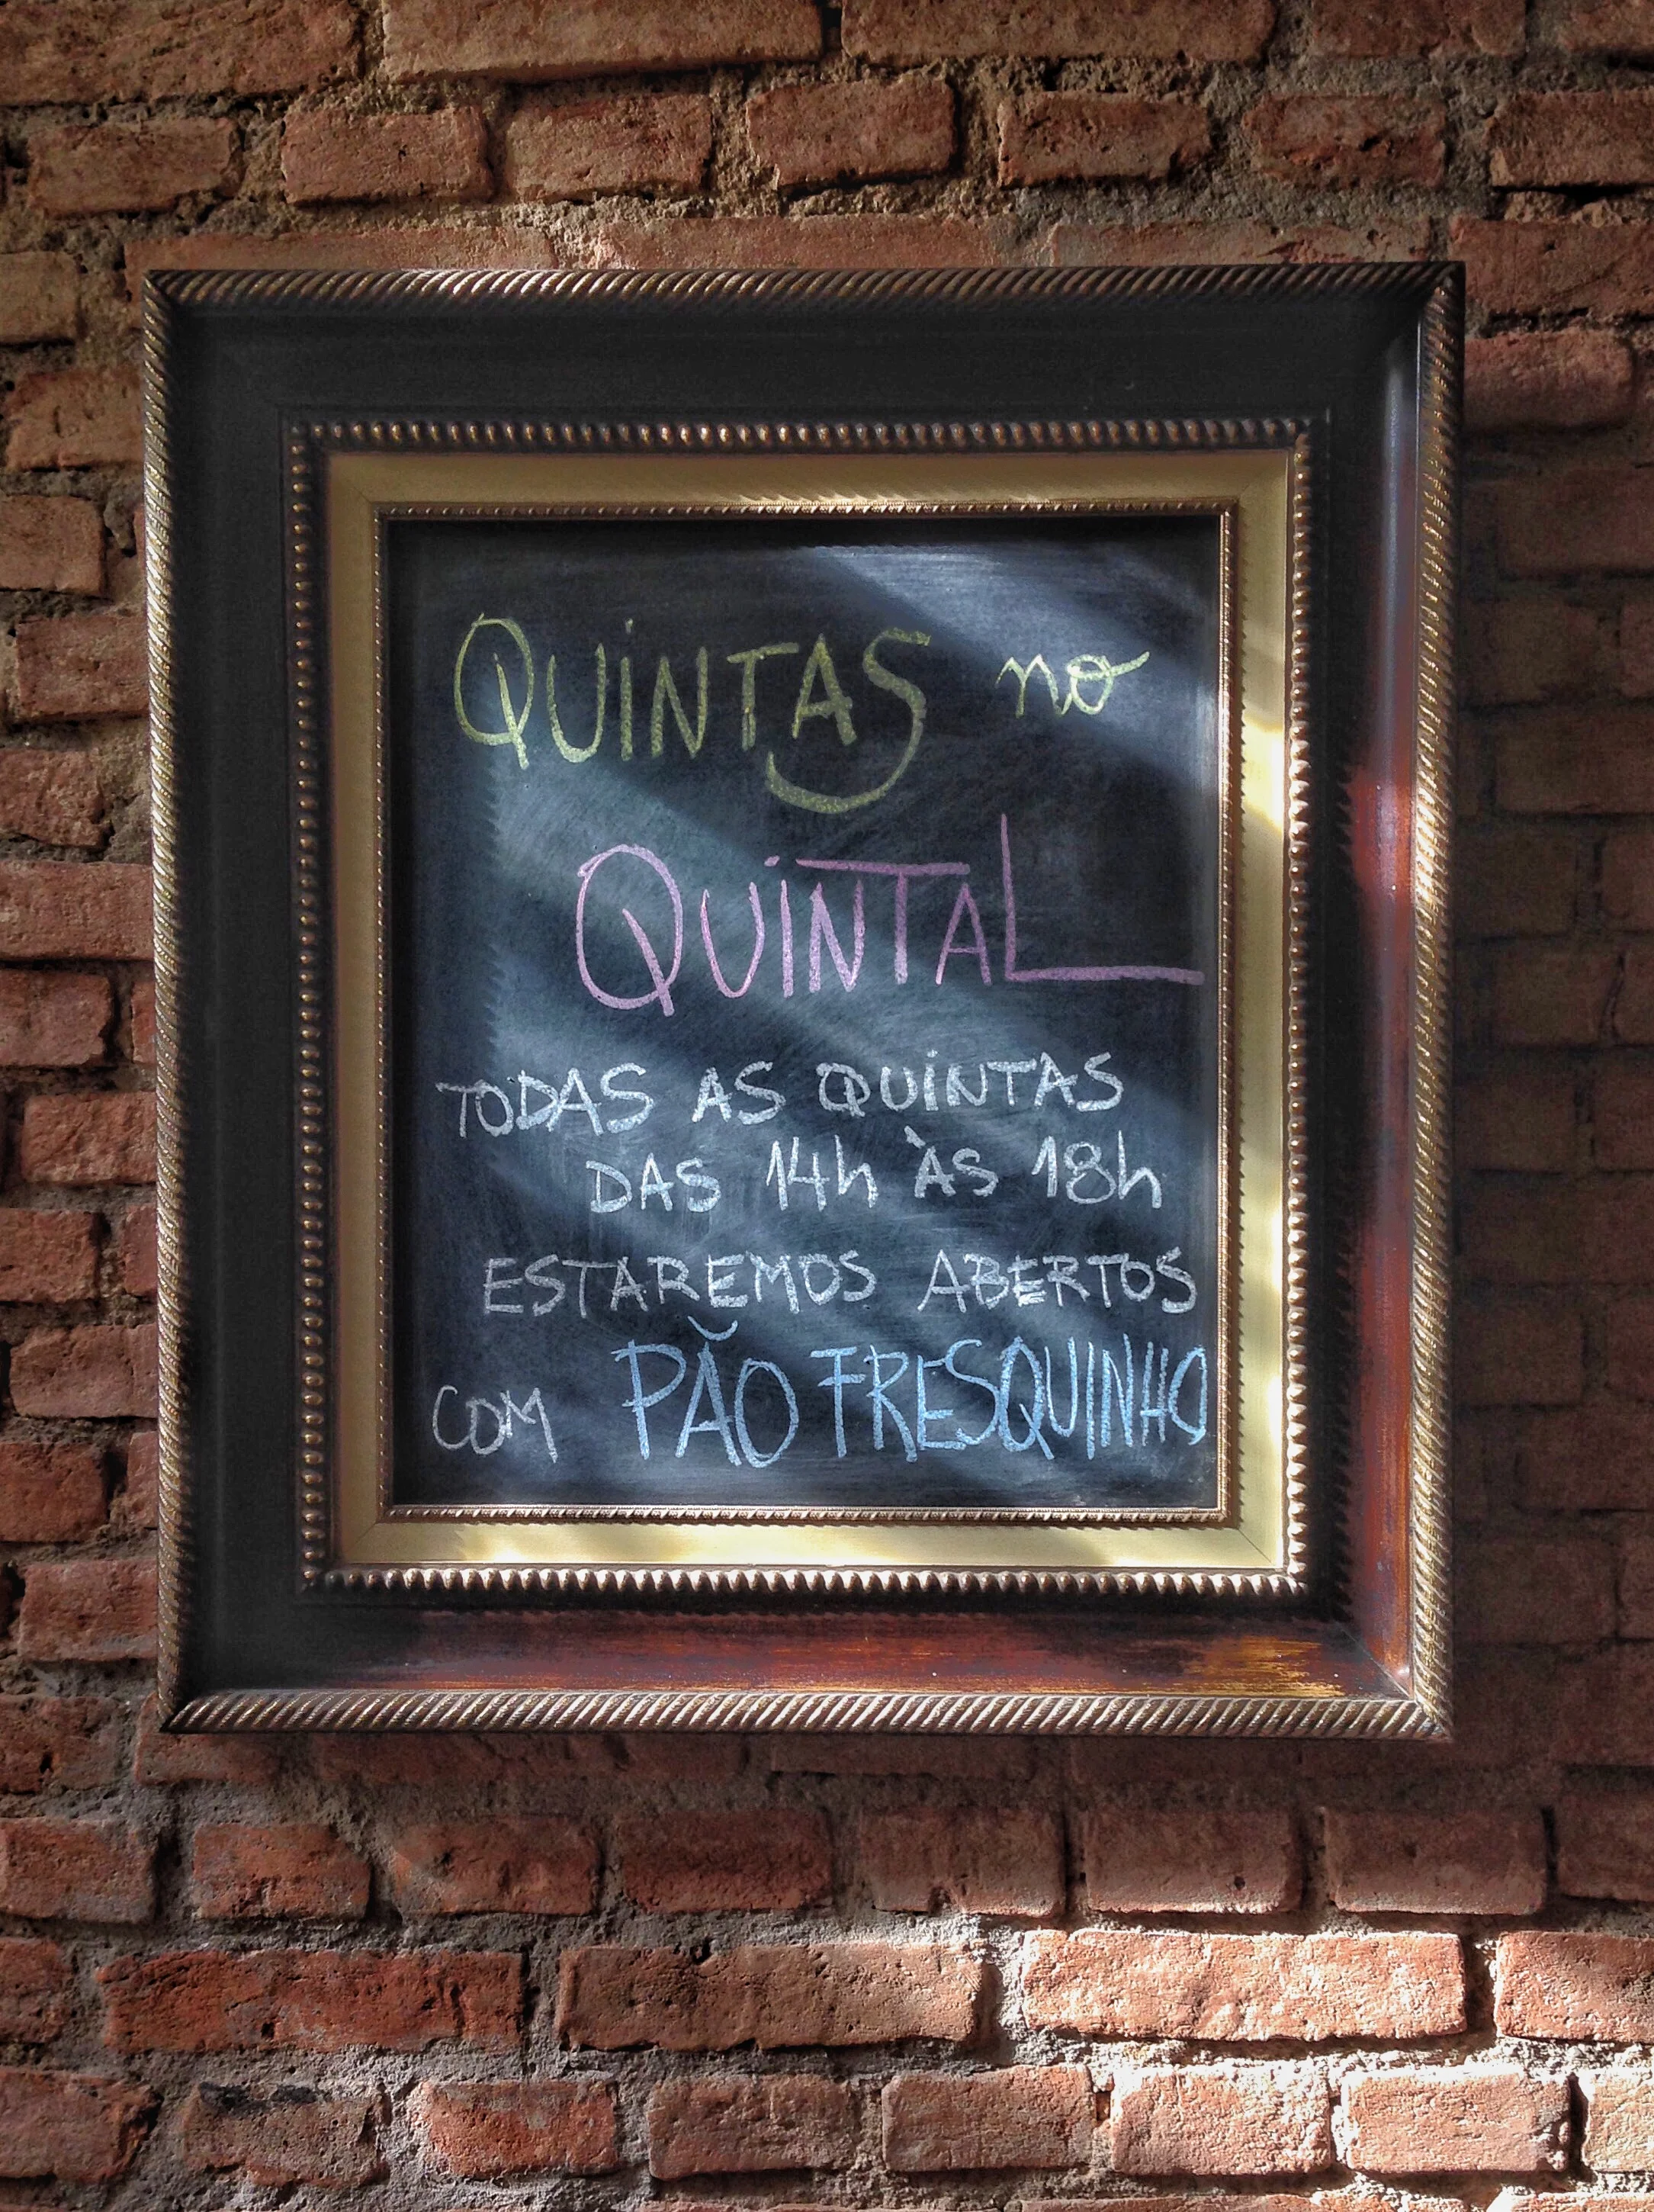 QUINTAS no
QUINTAL
TODAS AS QUINTAS
DAS 14h ÀS 18h
ESTAREMOS ABERTOS
COM PÃO FRESQUINHO